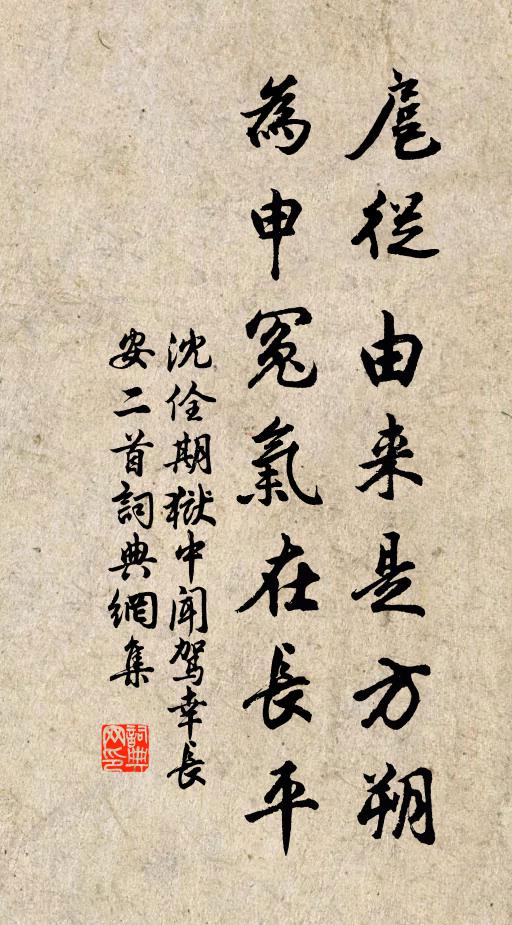 扈從由来是方朔
為申冤氣在長平
沈佺期獄中聞駕幸長
安二首詞典網集
詞典
网印